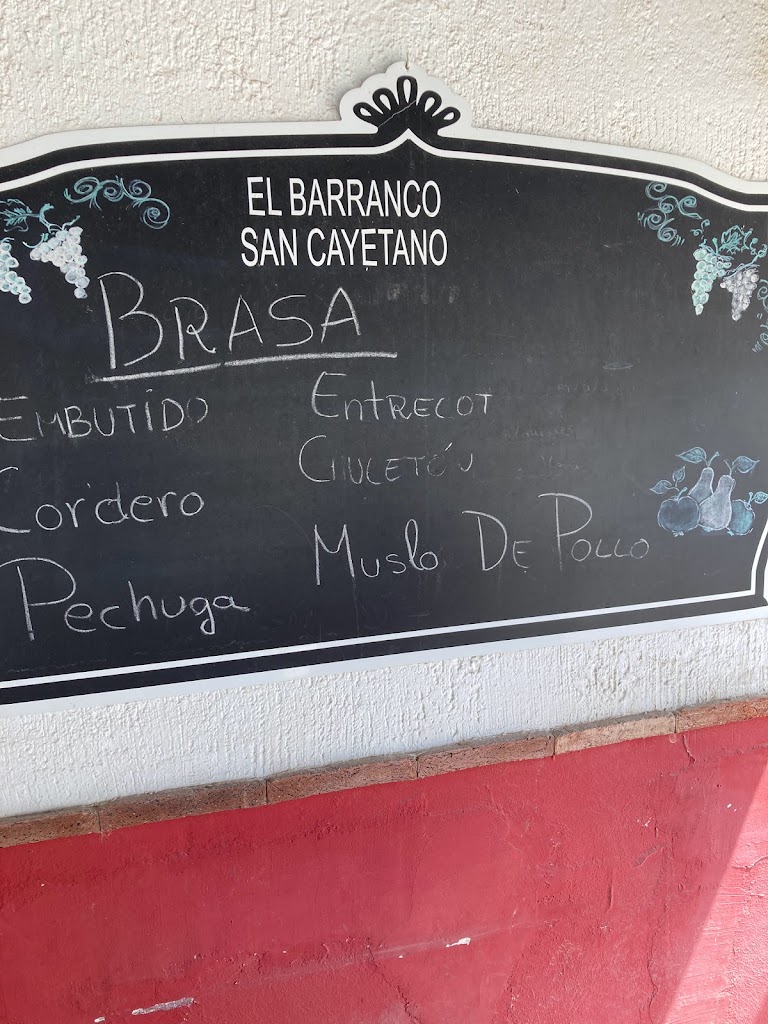 EL BARRANCO
SAN CAYETANO
BRASA
EMBUTIDO
Cordero
Pechuga
ENTRECOT
CHULETÓN
Muslo DE POLLO